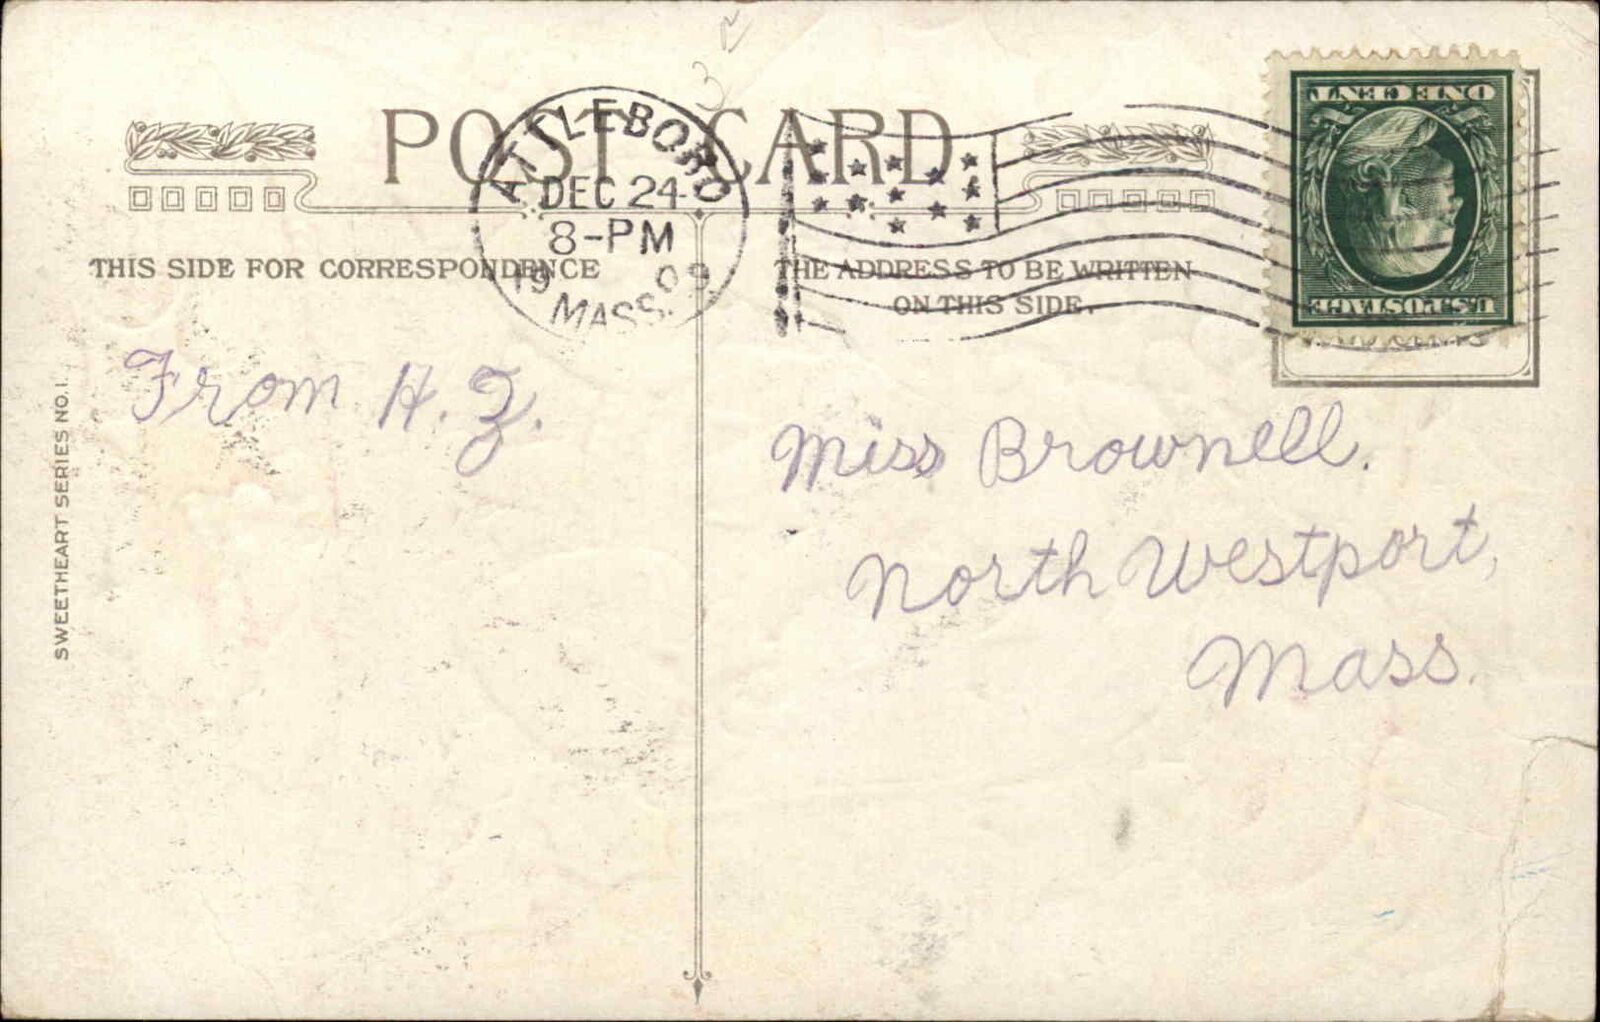 POST CARD
ATTLEBORO
DEC 24
8-PM
1909
MASS.
THIS SIDE FOR CORRESPONDENCE
THE ADDRESS TO BE WRITTEN
ON THIS SIDE.
ONE CENT
U.S. POSTAGE
CENTS
From H. Z.
Miss Brownell.
North Westport,
Mass.
SWEETHEART SERIES NO. 1.
3